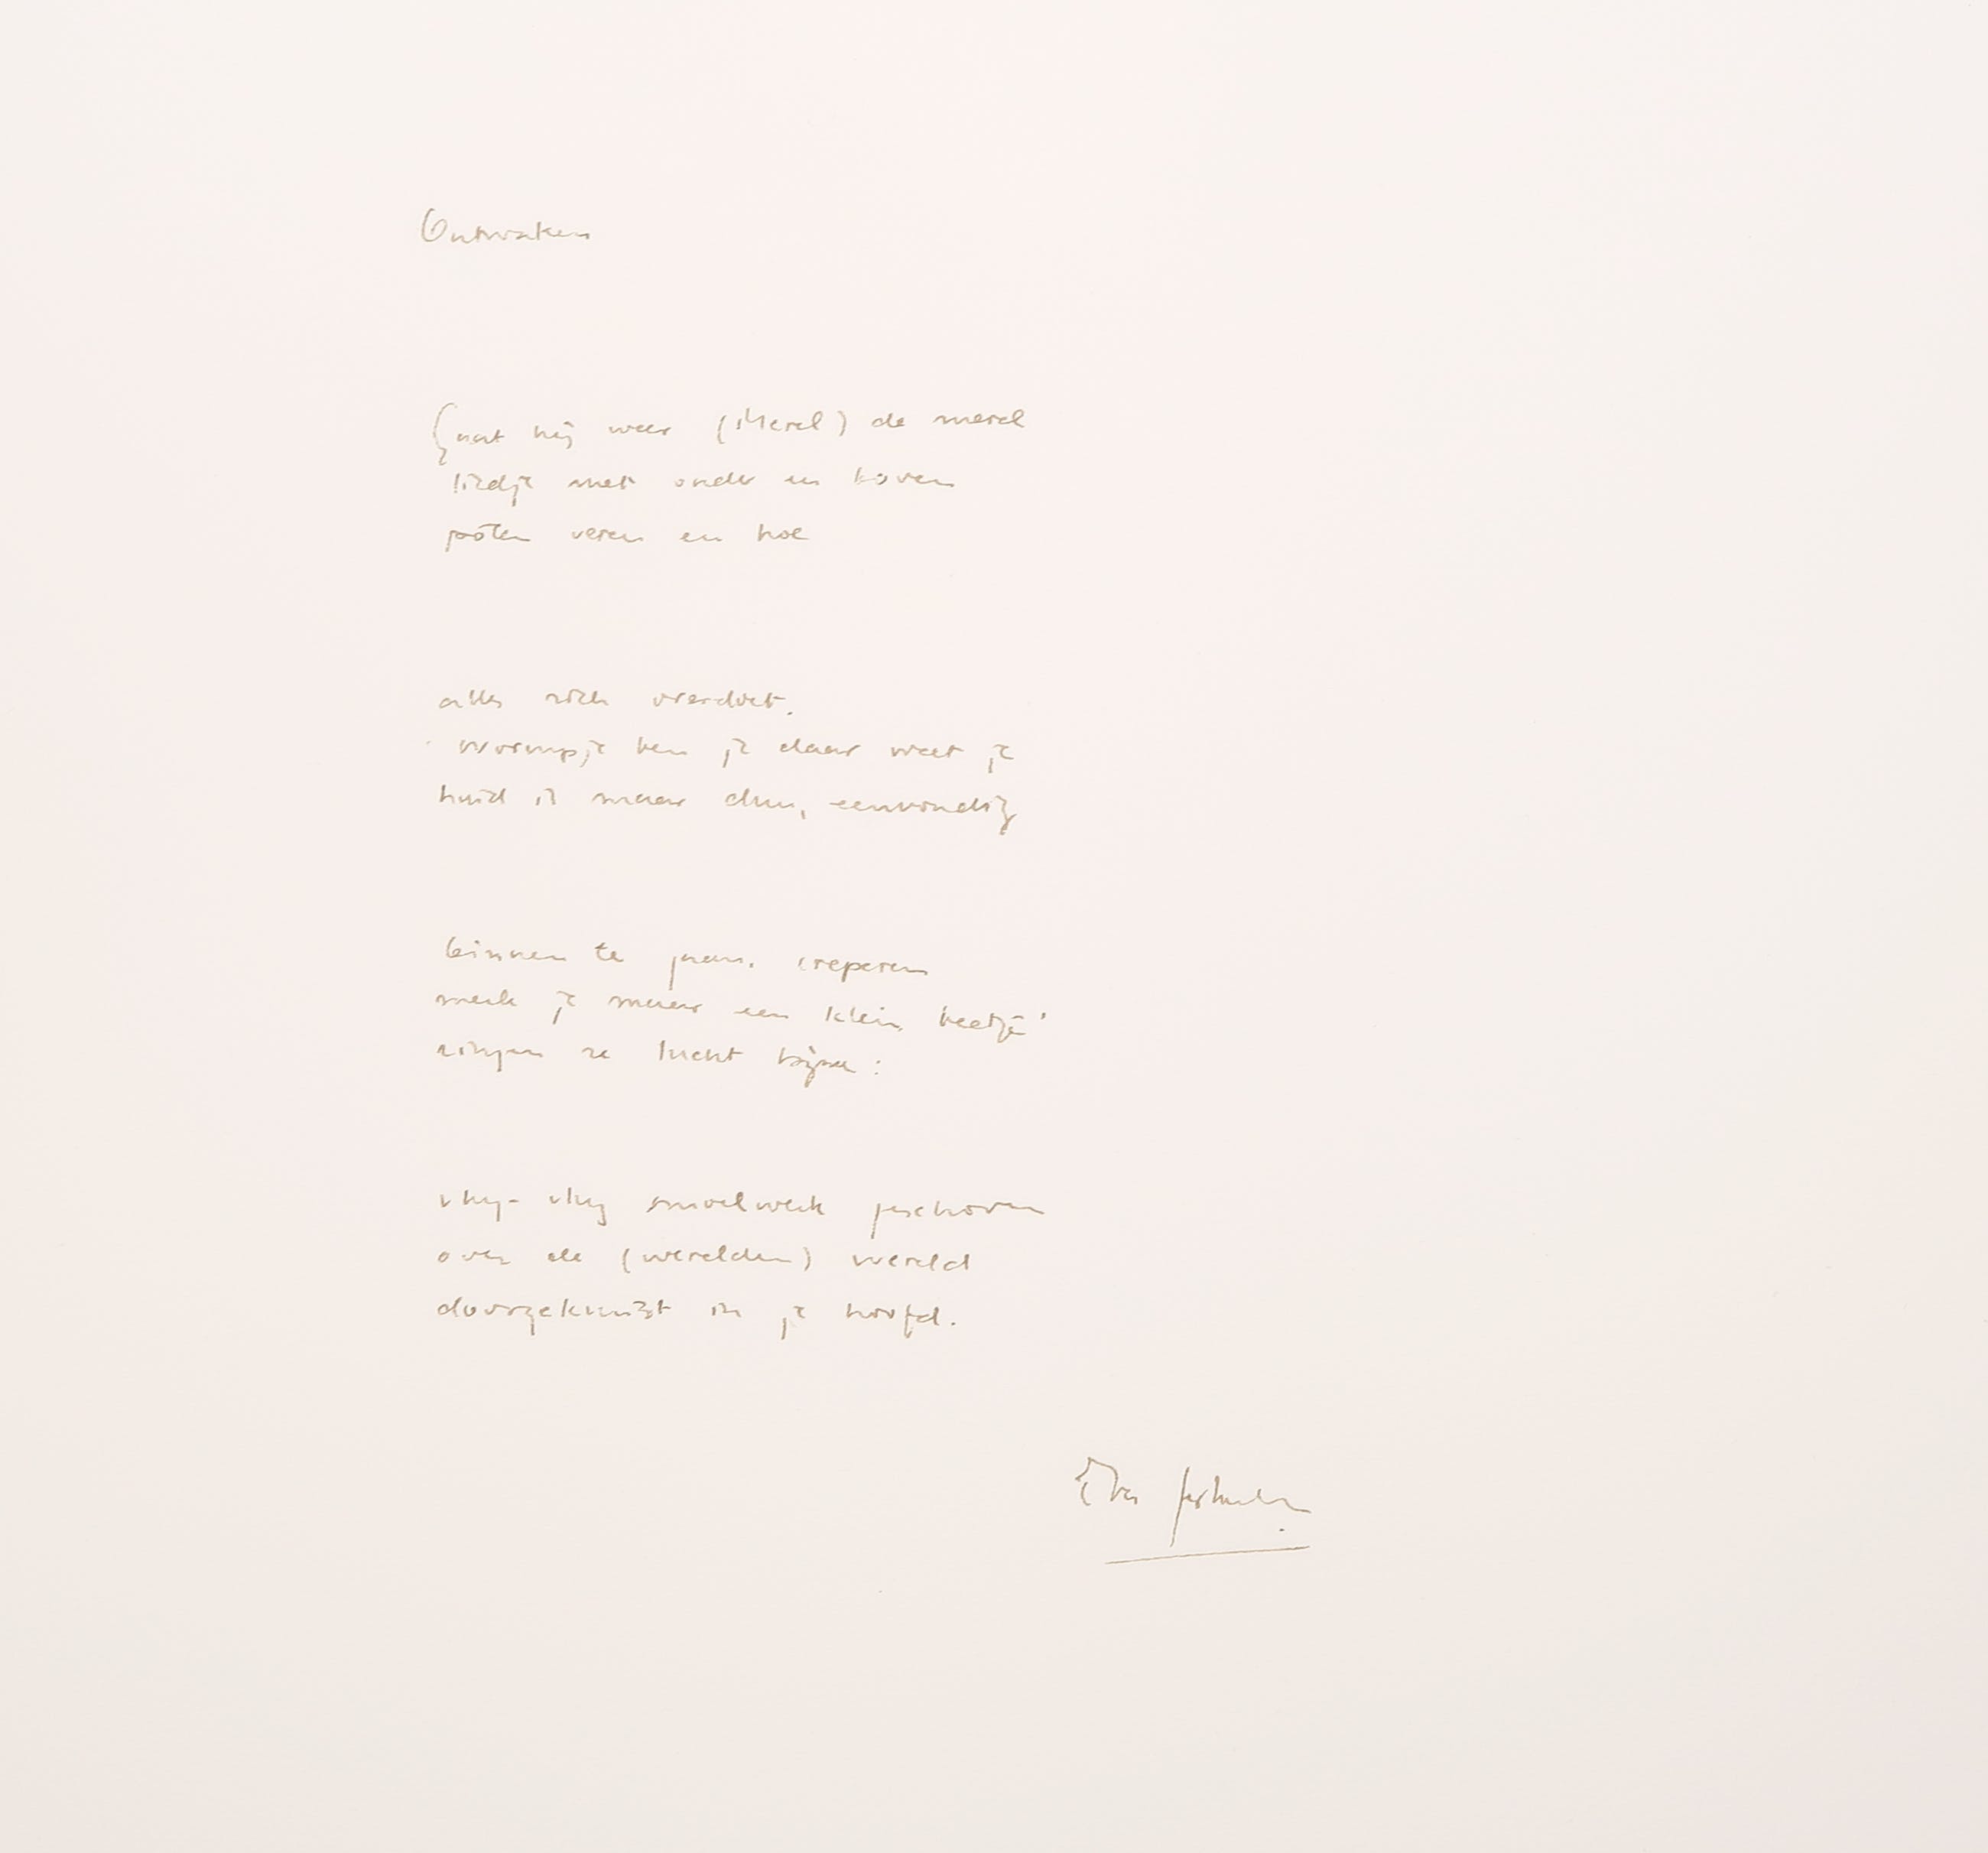 Ontwaken
Gaat hij weer (Merel) de merel
liedje met onder en boven
poten veren en hoe
alles zich verdoet.
wormpje ben je daar weet je
huid is maar dun, eenvoudig
binnen te gaan. creperen
merk je maar een klein beetje'
zingen ze lucht bijna:
vlug-vlug smoelwerk geschoven
over de (werelden) wereld
doorgeknuist in je hoofd.